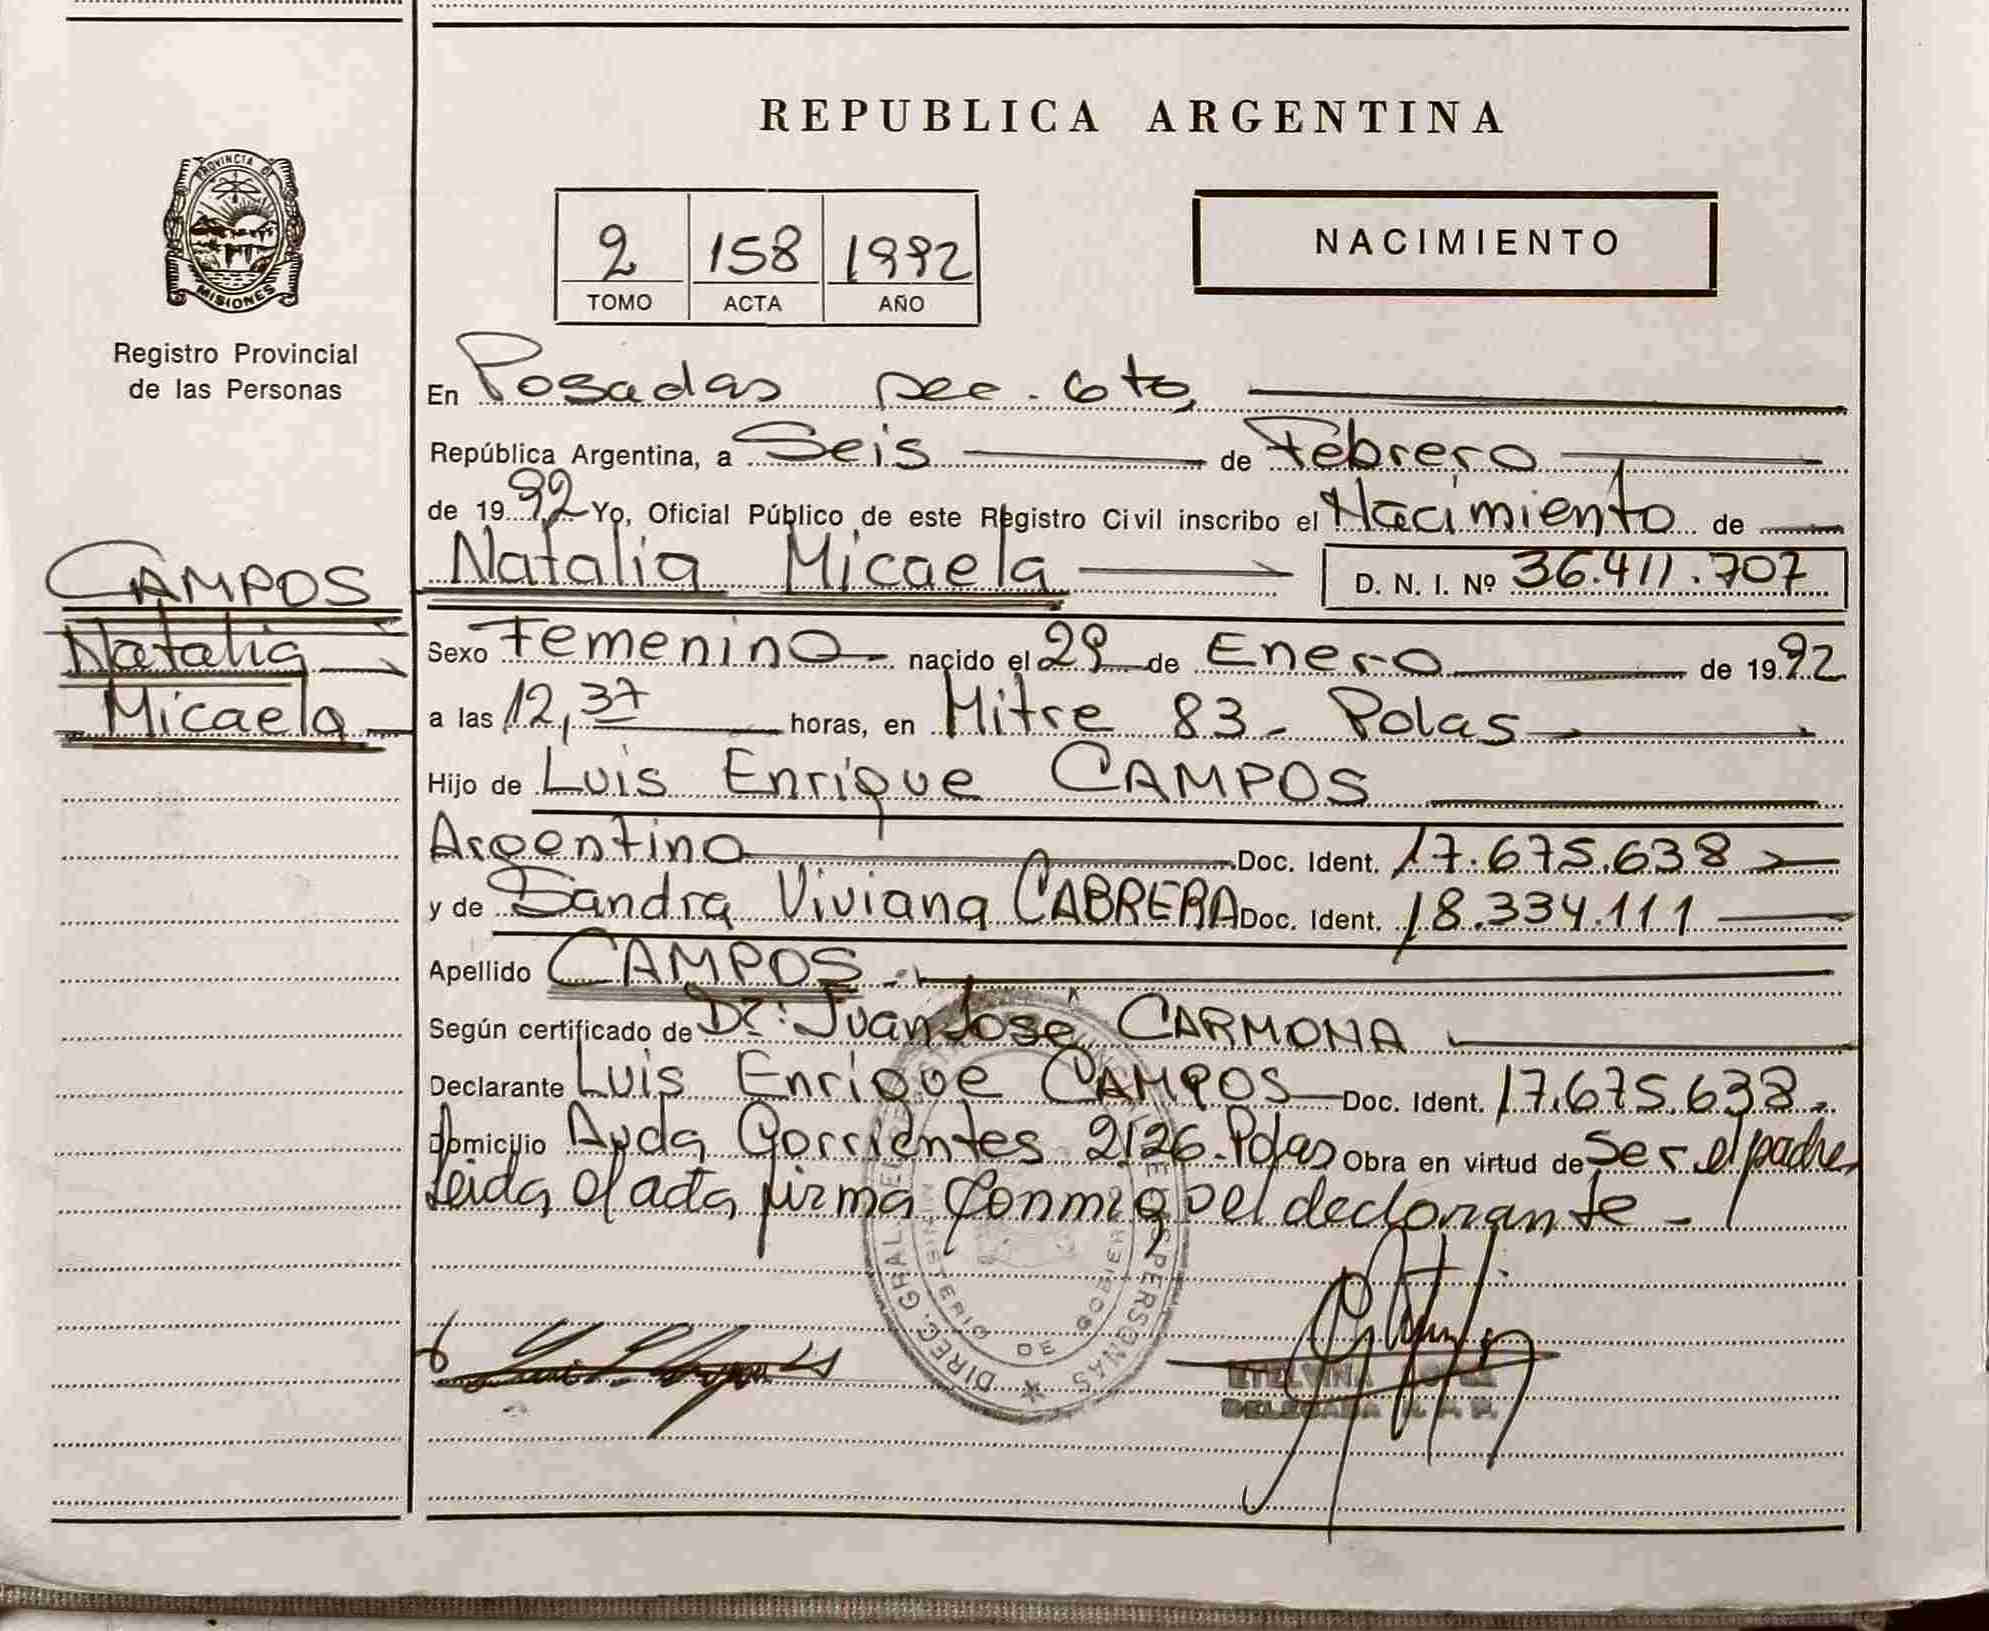 REPUBLICA ARGENTINA
PROVINCIA DE
MISIONES
Registro Provincial
de las Personas
2 158 1992
TOMO ACTA AÑO
NACIMIENTO
En Posadas sec. 6ta,
República Argentina, a Seis de Febrero
de 1992 Yo, Oficial Público de este Registro Civil inscribo el Nacimiento de
Natalia Micaela D. N. I. Nº 36.411.707
CAMPOS
Natalia
Micaela
Sexo Femenino nacido el 29 de Enero de 1992
a las 12,37 horas, en Mitre 83 - Pdas
Hijo de Luis Enrique CAMPOS
Argentino Doc. Ident. 17.675.638
y de Sandra Viviana CABRERA Doc. Ident. 18.334.111
Apellido CAMPOS.-
Según certificado de Dr: Juan José CARMONA
Declarante Luis Enrique CAMPOS Doc. Ident. 17.675.638.
Domicilio Avda Corrientes 2126. Pdas Obra en virtud de Ser el padre
Leida el acta firma conmigo el declarante -
DIREC. GRAL PERSONAS
MINISTERIO DE GOBIER
ETELVINA
DELEGADA